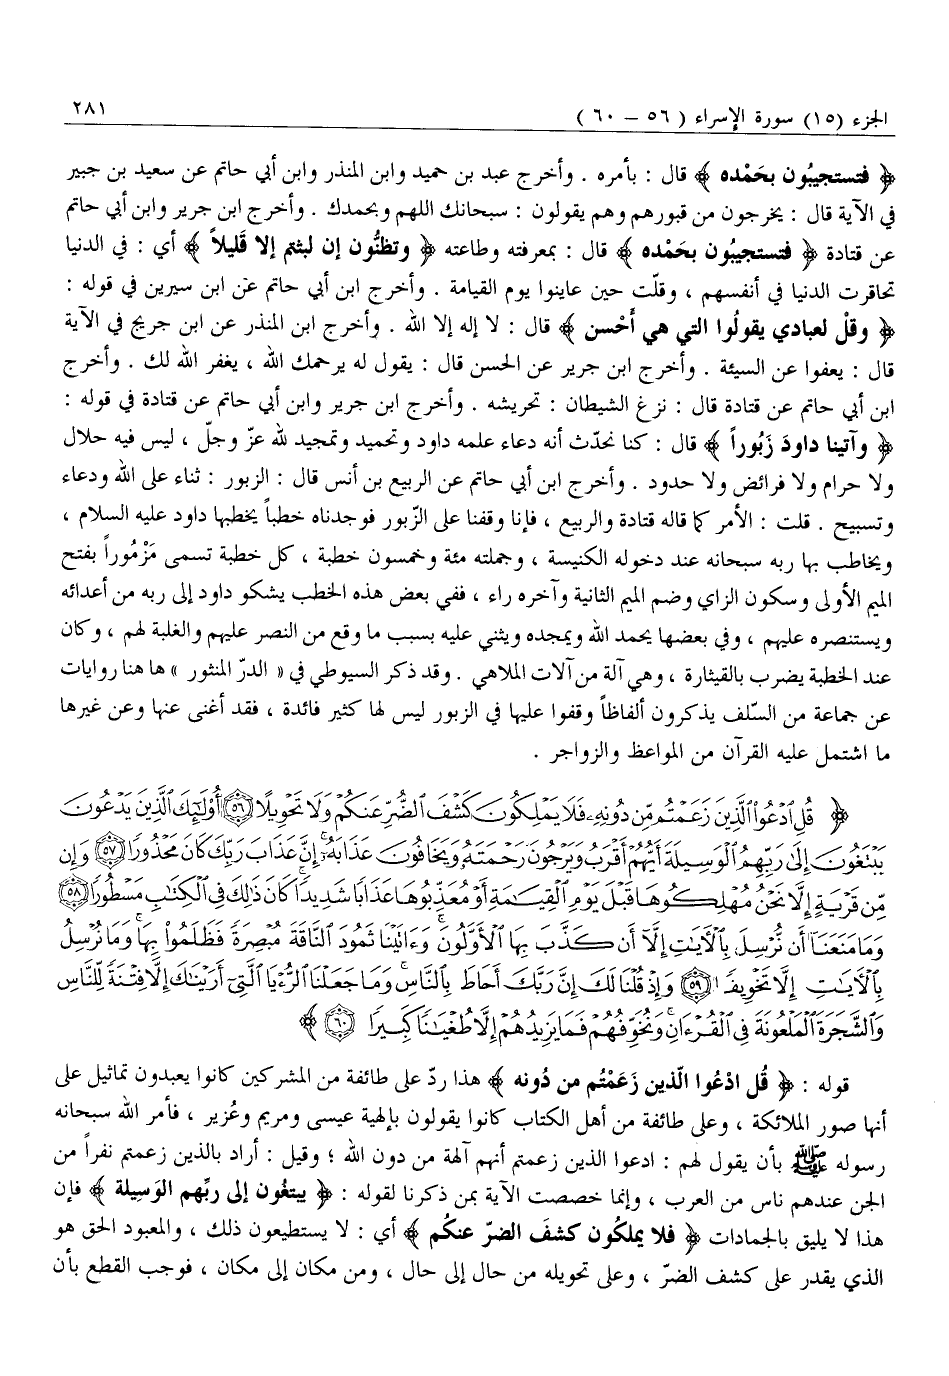 الجزء (١٥) سورة الإسراء ( ٥٦ – ٦٠ ) ٢٨١
﴿ فتستجيبُون بحَمْده ﴾ قال : بأمره . وأخرج عبد بن حميد وابن المنذر وابن أبي حاتم عن سعيد بن جبير
في الآية قال : يخرجون من قبورهم وهم يقولون : سبحانك اللهم وبحمدك . وأخرج ابن جرير وابن أبي حاتم
عن قتادة ﴿ فتستجيبُون بحَمْده ﴾ قال : بمعرفته وطاعته ﴿ وتظنُّون إن لبثتم إلا قَليلاً ﴾ أي : في الدنيا
تحاقرت الدنيا في أنفسهم ، وقلّت حين عاينوا يوم القيامة . وأخرج ابن أبي حاتم عن ابن سيرين في قوله :
﴿ وقلْ لعبادي يقولُوا التي هي أَحْسن ﴾ قال : لا إله إلا الله . وأخرج ابن المنذر عن ابن جريج في الآية
قال : يعفوا عن السيئة . وأخرج ابن جرير عن الحسن قال : يقول له يرحمك الله ، يغفر الله لك . وأخرج
ابن أبي حاتم عن قتادة قال : نزغ الشيطان : تحريشه . وأخرج ابن جرير وابن أبي حاتم عن قتادة في قوله :
﴿ وآتينا داودَ زَبُوراً ﴾ قال : كنا نحدّث أنه دعاء علمه داود وتحميد وتمجيد لله عزّ وجلّ ، ليس فيه حلال
ولا حرام ولا فرائض ولا حدود . وأخرج ابن أبي حاتم عن الربيع بن أنس قال : الزبور : ثناء على الله ودعاء
وتسبيح . قلت : الأمر كما قاله قتادة والربيع ، فإنا وقفنا على الزّبور فوجدناه خطباً يخطبها داود عليه السلام ،
ويخاطب بها ربه سبحانه عند دخوله الكنيسة ، وجملته مئة وخمسون خطبة ، كل خطبة تسمى مَزْمُوراً بفتح
الميم الأولى وسكون الزاي وضم الميم الثانية وآخره راء ، ففي بعض هذه الخطب يشكو داود إلى ربه من أعدائه
ويستنصره عليهم ، وفي بعضها يحمد الله ويمجده ويثني عليه بسبب ما وقع من النصر عليهم والغلبة لهم ، وكان
عند الخطبة يضرب بالقيثارة ، وهي آلة من آلات الملاهي . وقد ذكر السيوطي في « الدرّ المنثور » ها هنا روايات
عن جماعة من السّلف يذكرون ألفاظاً وقفوا عليها في الزبور ليس لها كثير فائدة ، فقد أغنى عنها وعن غيرها
ما اشتمل عليه القرآن من المواعظ والزواجر .
﴿ قُلِ ٱدْعُوا۟ ٱلَّذِينَ زَعَمْتُم مِّن دُونِهِۦ فَلَا يَمْلِكُونَ كَشْفَ ٱلضُّرِّ عَنكُمْ وَلَا تَحْوِيلًا ۝٥٦ أُو۟لَٰٓئِكَ ٱلَّذِينَ يَدْعُونَ
يَبْتَغُونَ إِلَىٰ رَبِّهِمُ ٱلْوَسِيلَةَ أَيُّهُمْ أَقْرَبُ وَيَرْجُونَ رَحْمَتَهُۥ وَيَخَافُونَ عَذَابَهُۥٓ ۚ إِنَّ عَذَابَ رَبِّكَ كَانَ مَحْذُورًا ۝٥٧ وَإِن
مِّن قَرْيَةٍ إِلَّا نَحْنُ مُهْلِكُوهَا قَبْلَ يَوْمِ ٱلْقِيَٰمَةِ أَوْ مُعَذِّبُوهَا عَذَابًا شَدِيدًا ۚ كَانَ ذَٰلِكَ فِى ٱلْكِتَٰبِ مَسْطُورًا ۝٥٨
وَمَا مَنَعَنَآ أَن نُّرْسِلَ بِٱلْءَايَٰتِ إِلَّآ أَن كَذَّبَ بِهَا ٱلْأَوَّلُونَ ۚ وَءَاتَيْنَا ثَمُودَ ٱلنَّاقَةَ مُبْصِرَةً فَظَلَمُوا۟ بِهَا ۚ وَمَا نُرْسِلُ
بِٱلْءَايَٰتِ إِلَّا تَخْوِيفًا ۝٥٩ وَإِذْ قُلْنَا لَكَ إِنَّ رَبَّكَ أَحَاطَ بِٱلنَّاسِ ۚ وَمَا جَعَلْنَا ٱلرُّءْيَا ٱلَّتِىٓ أَرَيْنَٰكَ إِلَّا فِتْنَةً لِّلنَّاسِ
وَٱلشَّجَرَةَ ٱلْمَلْعُونَةَ فِى ٱلْقُرْءَانِ ۚ وَنُخَوِّفُهُمْ فَمَا يَزِيدُهُمْ إِلَّا طُغْيَٰنًا كَبِيرًا ۝٦٠ ﴾
قوله : ﴿ قُل ادْعُوا الّذين زَعَمْتُم من دُونه ﴾ هذا ردّ على طائفة من المشركين كانوا يعبدون تماثيل على
أنها صور الملائكة ، وعلى طائفة من أهل الكتاب كانوا يقولون بإلهية عيسى ومريم وعُزير ، فأمر الله سبحانه
رسوله ﷺ بأن يقول لهم : ادعوا الذين زعمتم أنهم آلهة من دون الله ؛ وقيل : أراد بالذين زعمتم نفراً من
الجن عندهم ناس من العرب ، وإنما خصصت الآية بمن ذكرنا لقوله : ﴿ يبتغُون إلى ربِّهم الوَسيلة ﴾ فإن
هذا لا يليق بالجمادات ﴿ فلا يملكُون كشفَ الضرّ عنكُم ﴾ أي : لا يستطيعون ذلك ، والمعبود الحق هو
الذي يقدر على كشف الضرّ ، وعلى تحويله من حال إلى حال ، ومن مكان إلى مكان ، فوجب القطع بأن